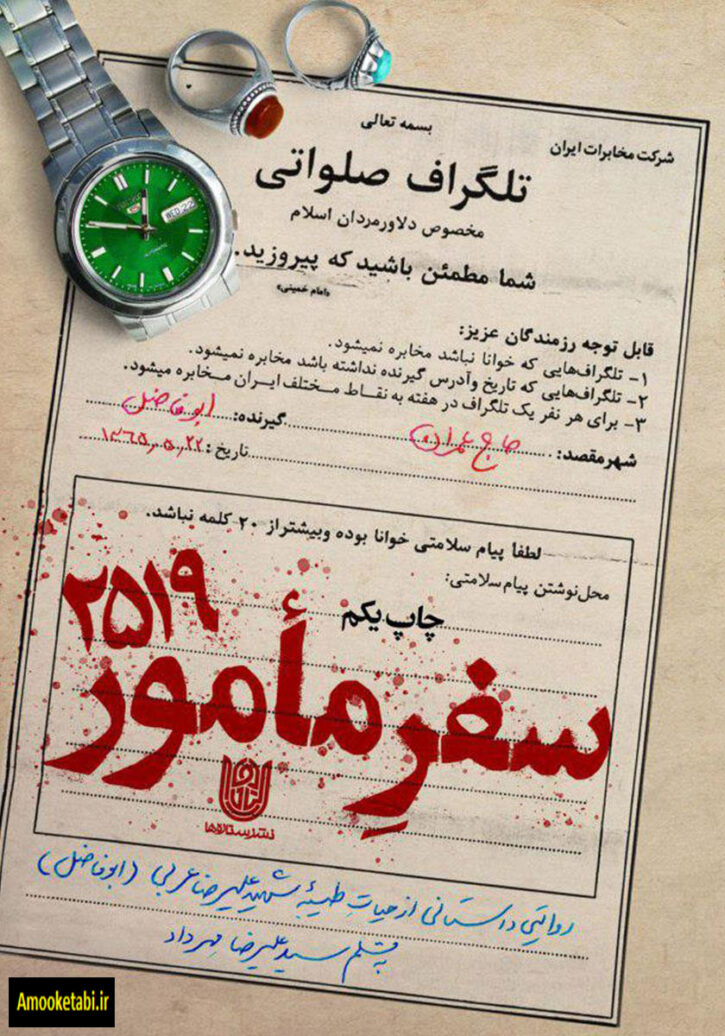 بسمه تعالی
شرکت مخابرات ایران
تلگراف صلواتی
مخصوص دلاورمردان اسلام
شما مطمئن باشید که پیروزید.
«امام خمینی»
قابل توجه رزمندگان عزیز:
۱- تلگراف‌هایی که خوانا نباشد مخابره نمیشود.
۲- تلگراف‌هایی که تاریخ وآدرس گیرنده نداشته باشد مخابره نمیشود.
۳- برای هر نفر یک تلگراف در هفته به نقاط مختلف ایران مخابره میشود.
شهرمقصد: حاج عمران گیرنده: ابوفاضل
تاریخ: ۱۳۶۵٫۵٫۲۲
لطفاً پیام سلامتی خوانا بوده وبیشتراز ۲۰ کلمه نباشد.
محل‌نوشتن پیام‌سلامتی:
چاپ یکم
سفرِ مأمور ۲۵۱۹
نشر ستاره‌ها
روایتی داستانی از حیات طیبهٔ شهید علیرضا عربی (ابوفاضل)
به قلم سید علیرضا مهرداد
SEIKO
5
WED 22
AUTOMATIC
Amooketabi.ir